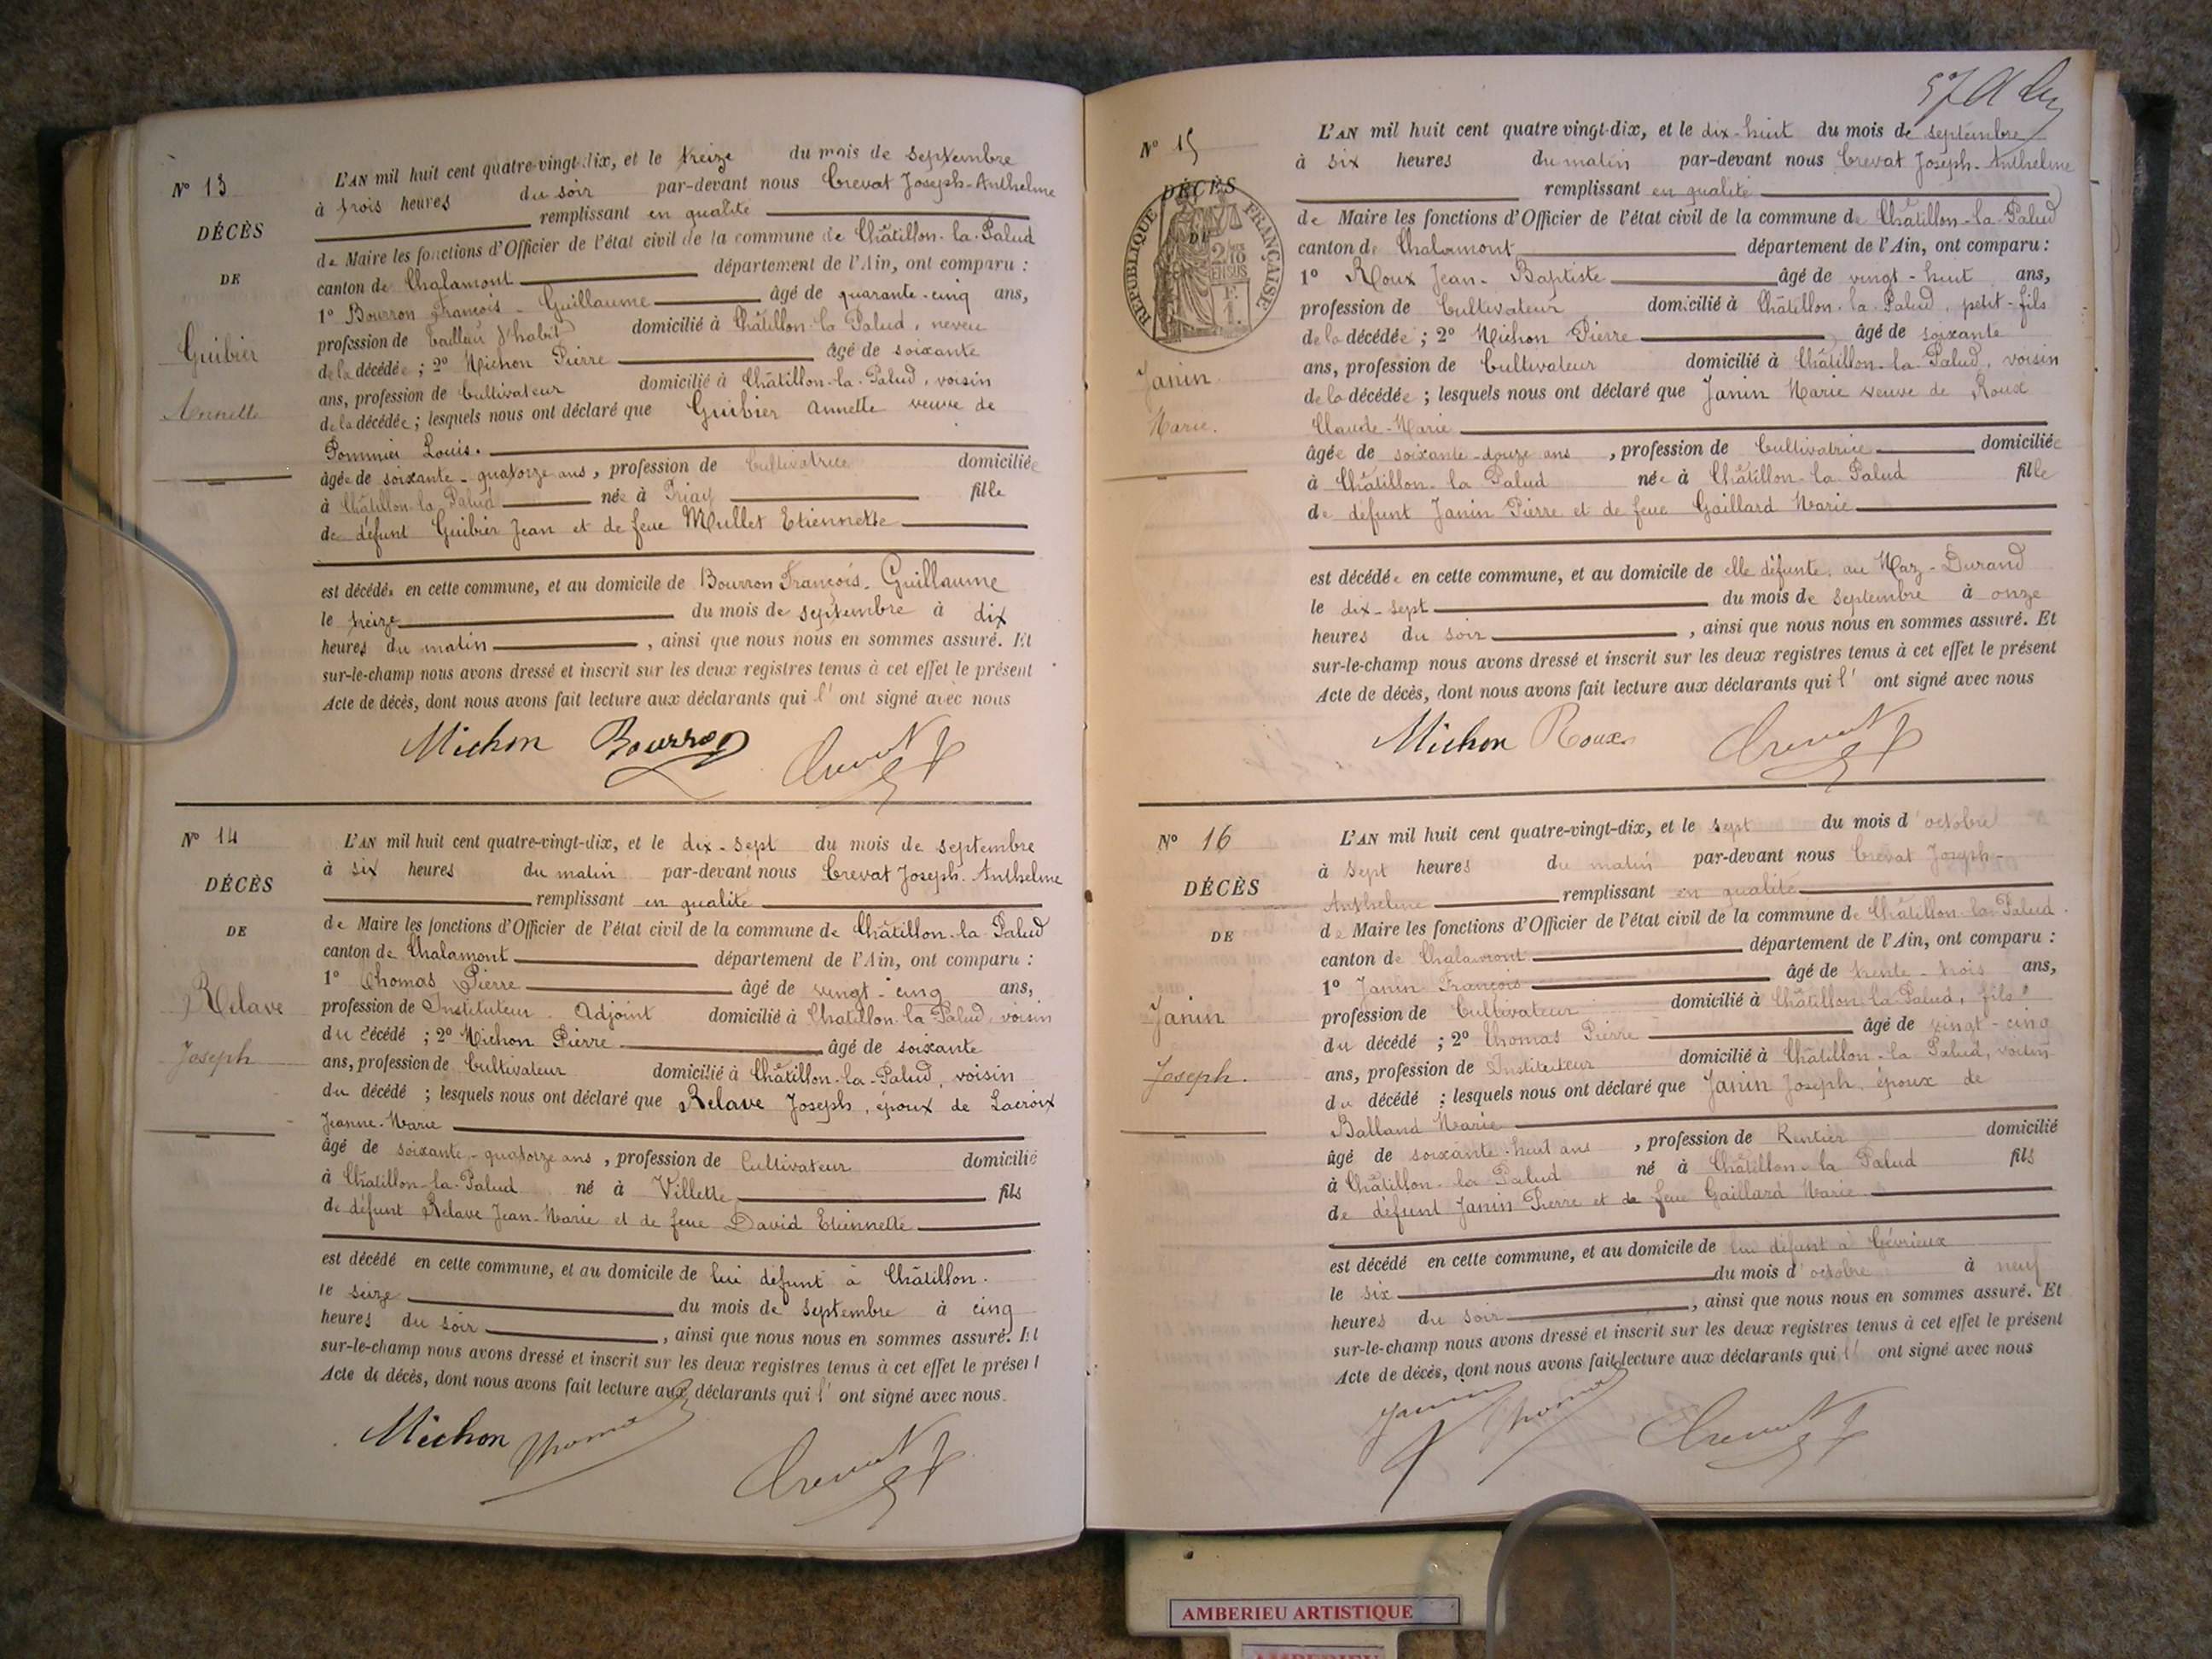 Nº 13
DÉCÈS
DE
Guibier
Annette
L'AN mil huit cent quatre-vingt-dix, et le treize du mois de septembre
à trois heures du soir par-devant nous Crevat Joseph-Anthelme
remplissant en qualité
de Maire les fonctions d'Officier de l'état civil de la commune de Châtillon-la-Palud
canton de Chalamont département de l'Ain, ont comparu :
1º Bourron François-Guillaume âgé de quarante-cinq ans,
profession de Tailleur d'habit domicilié à Châtillon-la Palud, neveu
de la décédée ; 2º Michon Pierre âgé de soixante
ans, profession de Cultivateur domicilié à Châtillon-la-Palud, voisin
de la décédée ; lesquels nous ont déclaré que Guibier Annette veuve de
Pommier Louis.
âgée de soixante-quatorze ans, profession de Cultivatrice domiciliée
à Châtillon-la Palud née à Priay fille
de défunt Guibier Jean et de feue Mullet Etiennette
est décédée en cette commune, et au domicile de Bourron François-Guillaume
le treize du mois de septembre à dix
heures du matin, ainsi que nous nous en sommes assuré. Et
sur-le-champ nous avons dressé et inscrit sur les deux registres tenus à cet effet le présent
Acte de décès, dont nous avons fait lecture aux déclarants qui l'ont signé avec nous
Michon Bourron Crevat
Nº 14
DÉCÈS
DE
Relave
Joseph
L'AN mil huit cent quatre-vingt-dix, et le dix-sept du mois de septembre
à six heures du matin par-devant nous Crevat Joseph-Anthelme
remplissant en qualité
de Maire les fonctions d'Officier de l'état civil de la commune de Châtillon-la-Palud
canton de Chalamont département de l'Ain, ont comparu :
1º Thomas Pierre âgé de vingt-cinq ans,
profession de Instituteur-Adjoint domicilié à Chatillon-la Palud, voisin
du décédé ; 2º Michon Pierre âgé de soixante
ans, profession de Cultivateur domicilié à Châtillon-la-Palud, voisin
du décédé ; lesquels nous ont déclaré que Relave Joseph, époux de Lacroix
Jeanne-Marie
âgé de soixante-quatorze ans, profession de Cultivateur domicilié
à Châtillon-la-Palud né à Villette fils
de défunt Relave Jean-Marie et de feue David Etiennette
est décédé en cette commune, et au domicile de lui défunt à Châtillon.
le seize du mois de septembre à cinq
heures du soir, ainsi que nous nous en sommes assuré. Et
sur-le-champ nous avons dressé et inscrit sur les deux registres tenus à cet effet le présent
Acte de décès, dont nous avons fait lecture aux déclarants qui l'ont signé avec nous.
Michon Thomas Crevat
Nº 15
DÉCÈS
DE
RÉPUBLIQUE FRANÇAISE
Janin
Marie.
L'AN mil huit cent quatre vingt-dix, et le dix-huit du mois de septembre
à six heures du matin par-devant nous Crevat Joseph-Anthelme
remplissant en qualité
de Maire les fonctions d'Officier de l'état civil de la commune de Châtillon-la-Palud
canton de Chalamont département de l'Ain, ont comparu :
1º Roux Jean-Baptiste âgé de vingt-huit ans,
profession de Cultivateur domicilié à Châtillon-la-Palud, petit-fils
de la décédée ; 2º Michon Pierre, âgé de soixante
ans, profession de Cultivateur domicilié à Châtillon-la-Palud, voisin
de la décédée ; lesquels nous ont déclaré que Janin Marie veuve de Roux
Claude-Marie
âgée de soixante-douze ans, profession de Cultivatrice domiciliée
à Châtillon-la Palud née à Châtillon-la-Palud fille
de défunt Janin Pierre et de feue Gaillard Marie
est décédée en cette commune, et au domicile de elle défunte, au Maz-Durand
le dix-sept du mois de septembre à onze
heures du soir, ainsi que nous nous en sommes assuré. Et
sur-le-champ nous avons dressé et inscrit sur les deux registres tenus à cet effet le présent
Acte de décès, dont nous avons fait lecture aux déclarants qui l'ont signé avec nous
Michon Roux Crevat
Nº 16
DÉCÈS
DE
Janin
Joseph.
L'AN mil huit cent quatre-vingt-dix, et le sept du mois d'octobre
à sept heures du matin par-devant nous Crevat Joseph-
Anthelme remplissant en qualité
de Maire les fonctions d'Officier de l'état civil de la commune de Châtillon-la-Palud.
canton de Chalamont département de l'Ain, ont comparu :
1º Janin François âgé de trente-trois ans,
profession de Cultivateur domicilié à Châtillon-la Palud, fils
du décédé ; 2º Thomas Pierre âgé de vingt-cinq
ans, profession de Instituteur domicilié à Châtillon-la Palud, voisin
du décédé ; lesquels nous ont déclaré que Janin Joseph, époux de
Balland Marie
âgé de soixante-huit ans, profession de Rentier domicilié
à Châtillon-la Palud né à Châtillon-la Palud fils
de défunt Janin Pierre et de feue Gaillard Marie
est décédé en cette commune, et au domicile de lui défunt à Gévrieux
le six du mois d'octobre à neuf
heures du soir, ainsi que nous nous en sommes assuré. Et
sur-le-champ nous avons dressé et inscrit sur les deux registres tenus à cet effet le présent
Acte de décès, dont nous avons fait lecture aux déclarants qui l'ont signé avec nous
Janin Thomas Crevat
AMBERIEU ARTISTIQUE
AMBERIEU